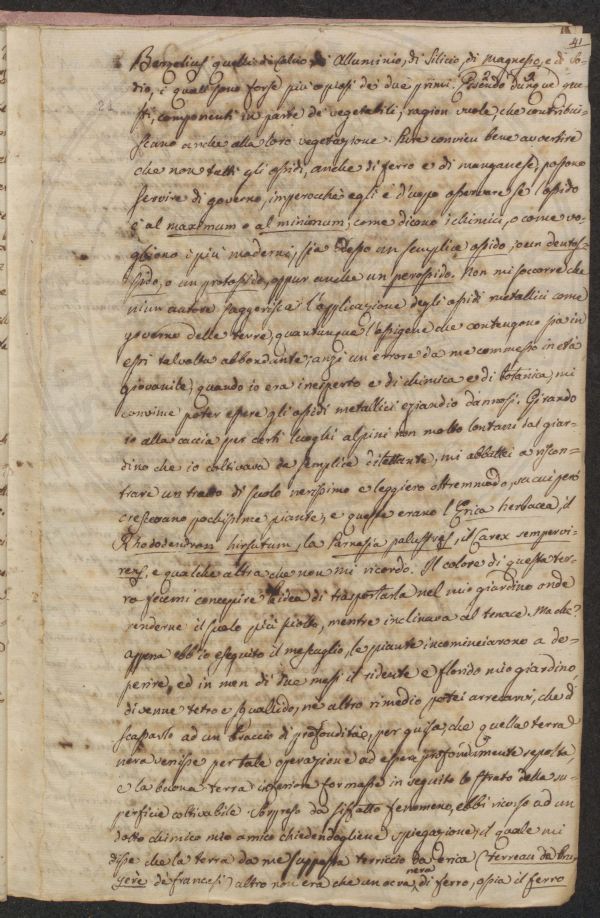 41
Berzelius quelli di Calcio, di Alluminio, di Silicio, di Magnesio, e di So-
dio, i quali sono forse più copiosi de' due primi. Essendo dunque que
sti, componenti in parte de' vegetabili, ragion vuole, che contribui-
scano anche alla loro vegetazione. Pure convien bene avvertire
che non tutti gli ossidi, anche di ferro e di manganese, possono
servire di governo, imperocchè egli è d'uopo osservare se l'ossido
è al maximum o al minimum, come dicono i chimici, o come vo-
gliono i più moderni, sia desso un semplice ossido, o un deutos-
sido, o un protossido, oppur anche un perossido. Non mi soccorre che
niun autore suggerisca l'applicazione degli ossidi metallici come
governo delle terre, quantunque l'ossigene che contengono sia in
essi talvolta abbondante; anzi un errore da me commesso in età
giovanile, quando io era inesperto e di chimica e di botanica, mi
convinse poter essere gli ossidi metallici eziandio dannosi. Girando
io alla caccia per certi luoghi alpini non molto lontani dal giar-
dino che io coltivava da semplice dilettante, mi abbattei a riscon-
trare un tratto di suolo nerissimo e leggiero oltremodo, su cui però
crescevano pochissime piante, e queste erano l'Erica herbacea, il
Rhododendron hirsutum, la Parnassia palustris, il Carex sempervi-
rens, e qualche altra che non mi ricordo. Il colore di questa ter-
ra fecemi concepire l'idea di trasportarla nel mio giardino onde
renderne il suolo più sciolto, mentre inclinava al tenace. Ma che?
appena ebb'io eseguito il mescuglio, le piante incominciarono a de-
perire, ed in men di due mesi il ridente e florido mio giardino,
divenne tetro e squallido, nè altro rimedio potei arrecarvi, che di
scassarlo ad un braccio di profondità, per guisa, che quella terra
nera venisse per tale operazione ad essere profondamente sepolta,
e la buona terra inferiore formasse in seguito lo strato della su-
perficie coltivabile. Sorpreso da siffatto fenomeno, ebbi ricorso ad un
dotto chimico mio amico chiedendogliene spiegazione, il quale mi
disse che la terra da me supposta terriccio da Erica (terreau de bru-
yère de' francesi) altro non era che un ocra nera di ferro, ossia il ferro